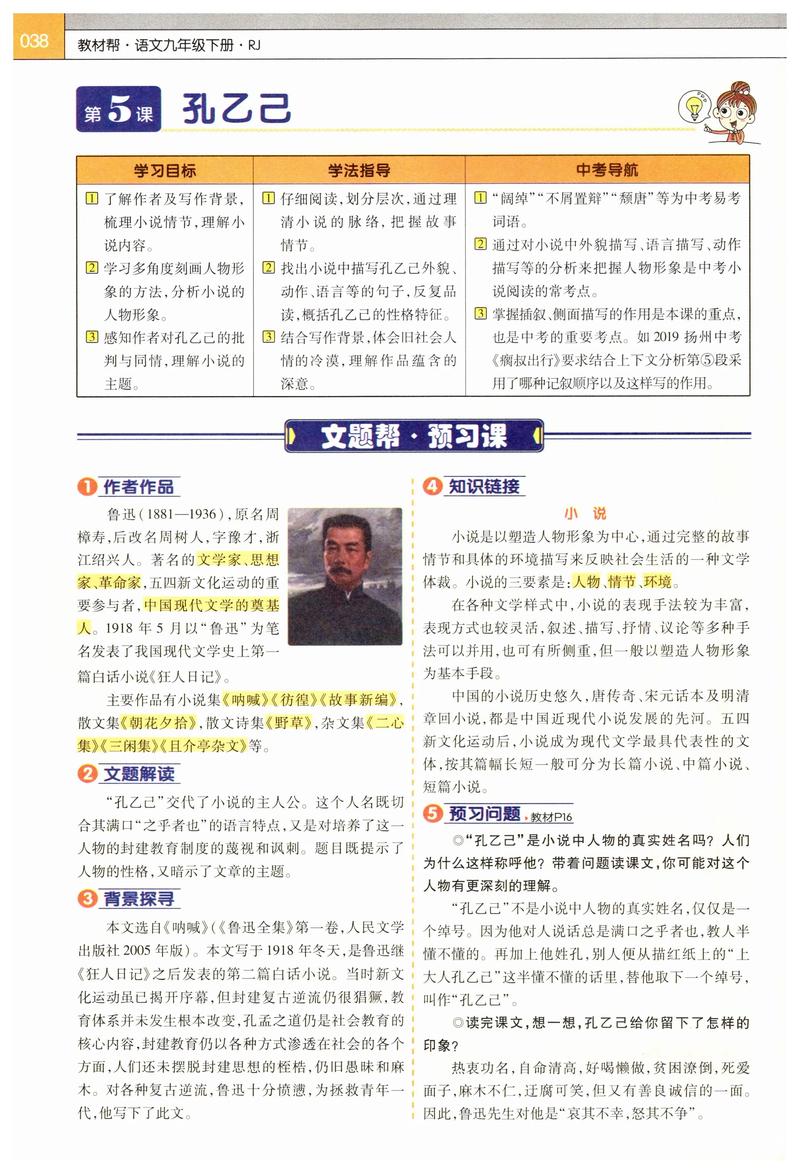 038
教材帮·语文九年级下册·RJ
第5课 孔乙己
学习目标
1 了解作者及写作背景,
梳理小说情节,理解小
说内容。
2 学习多角度刻画人物形
象的方法,分析小说的
人物形象。
3 感知作者对孔乙己的批
判与同情,理解小说的
主题。
学法指导
1 仔细阅读,划分层次,通过理
清小说的脉络,把握故事
情节。
2 找出小说中描写孔乙己外貌、
动作、语言等的句子,反复品
读,概括孔乙己的性格特征。
3 结合写作背景,体会旧社会人
情的冷漠,理解作品蕴含的
深意。
中考导航
1 “阔绰”“不屑置辩”“颓唐”等为中考易考
词语。
2 通过对小说中外貌描写、语言描写、动作
描写等的分析来把握人物形象是中考小
说阅读的常考点。
3 掌握插叙、侧面描写的作用是本课的重点,
也是中考的重要考点。如 2019 扬州中考
《瘸叔出行》要求结合上下文分析第⑤段采
用了哪种记叙顺序以及这样写的作用。
文题帮·预习课
1 作者作品
鲁迅(1881—1936),原名周
樟寿,后改名周树人,字豫才,浙
江绍兴人。著名的文学家、思想
家、革命家,五四新文化运动的重
要参与者,中国现代文学的奠基
人。1918 年 5 月以“鲁迅”为笔
名发表了我国现代文学史上第一
篇白话小说《狂人日记》。
主要作品有小说集《呐喊》《彷徨》《故事新编》,
散文集《朝花夕拾》,散文诗集《野草》,杂文集《二心
集》《三闲集》《且介亭杂文》等。
2 文题解读
“孔乙己”交代了小说的主人公。这个人名既切
合其满口“之乎者也”的语言特点,又是对培养了这一
人物的封建教育制度的蔑视和讽刺。题目既提示了
人物的性格,又暗示了文章的主题。
3 背景探寻
本文选自《呐喊》(《鲁迅全集》第一卷,人民文学
出版社 2005 年版)。本文写于 1918 年冬天,是鲁迅继
《狂人日记》之后发表的第二篇白话小说。当时新文
化运动虽已揭开序幕,但封建复古逆流仍很猖獗,教
育体系并未发生根本改变,孔孟之道仍是社会教育的
核心内容,封建教育仍以各种方式渗透在社会的各个
方面,人们还未摆脱封建思想的桎梏,仍旧愚昧和麻
木。对各种复古逆流,鲁迅十分愤懑,为拯救青年一
代,他写下了此文。
4 知识链接
小 说
小说是以塑造人物形象为中心,通过完整的故事
情节和具体的环境描写来反映社会生活的一种文学
体裁。小说的三要素是:人物、情节、环境。
在各种文学样式中,小说的表现手法较为丰富,
表现方式也较灵活,叙述、描写、抒情、议论等多种手
法可以并用,也可有所侧重,但一般以塑造人物形象
为基本手段。
中国的小说历史悠久,唐传奇、宋元话本及明清
章回小说,都是中国近现代小说发展的先河。五四
新文化运动后,小说成为现代文学最具代表性的文
体,按其篇幅长短一般可分为长篇小说、中篇小说、
短篇小说。
5 预习问题 教材P16
◎“孔乙己”是小说中人物的真实姓名吗?人们
为什么这样称呼他?带着问题读课文,你可能对这个
人物有更深刻的理解。
“孔乙己”不是小说中人物的真实姓名,仅仅是一
个绰号。因为他对人说话总是满口之乎者也,教人半
懂不懂的。再加上他姓孔,别人便从描红纸上的“上
大人孔乙己”这半懂不懂的话里,替他取下一个绰号,
叫作“孔乙己”。
◎读完课文,想一想,孔乙己给你留下了怎样的
印象?
热衷功名,自命清高,好喝懒做,贫困潦倒,死爱
面子,麻木不仁,迂腐可笑,但又有善良诚信的一面。
因此,鲁迅先生对他是“哀其不幸,怒其不争”。